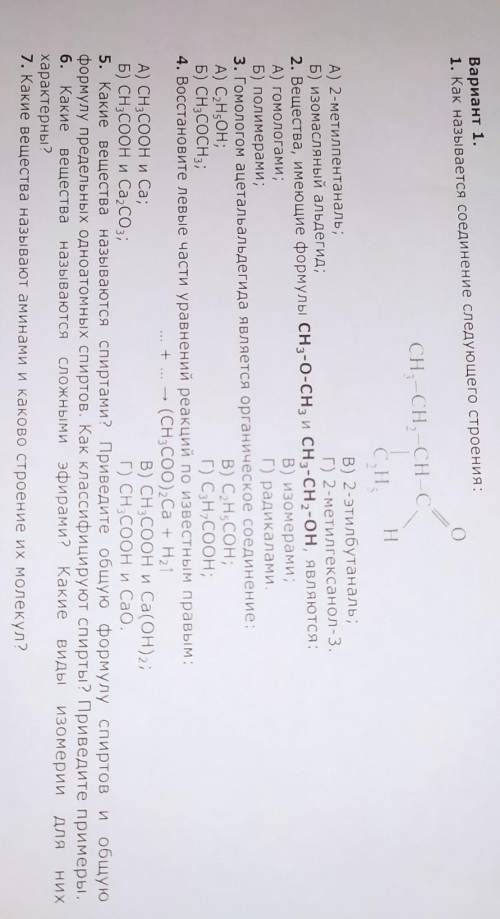 Вариант 1.
1. Как называется соединение следующего строения:
O
CH₃–CH₂–CH–C
H
C₂H₅
А) 2-метилпентаналь;
Б) изомасляный альдегид;
В) 2-этилбутаналь;
Г) 2-метилгексанол-3.
2. Вещества, имеющие формулы CH₃-O-CH₃ и CH₃-CH₂-OH, являются:
А) гомологами;
Б) полимерами;
В) изомерами;
Г) радикалами.
3. Гомологом ацетальальдегида является органическое соединение:
А) C₂H₅OH;
Б) CH₃COCH₃;
В) C₂H₅COH;
Г) C₃H₇COOH;
4. Восстановите левые части уравнений реакций по известным правым:
.... + ... → (CH₃COO)₂Ca + H₂↑
А) CH₃COOH и Ca;
Б) CH₃COOH и Ca₂CO₃;
В) CH₃COOH и Ca(OH)₂;
Г) CH₃COOH и CaO.
5. Какие вещества называются спиртами? Приведите общую формулу спиртов и общую
формулу предельных одноатомных спиртов. Как классифицируют спирты? Приведите примеры.
6. Какие вещества называются сложными эфирами? Какие виды изомерии для них
характерны?
7. Какие вещества называют аминами и каково строение их молекул?